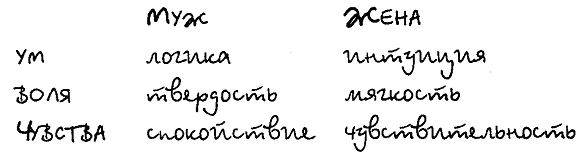 МУЖ ЖЕНА
УМ логика интуиция
ВОЛЯ твердость мягкость
ЧУВСТВА спокойствие чувствительность